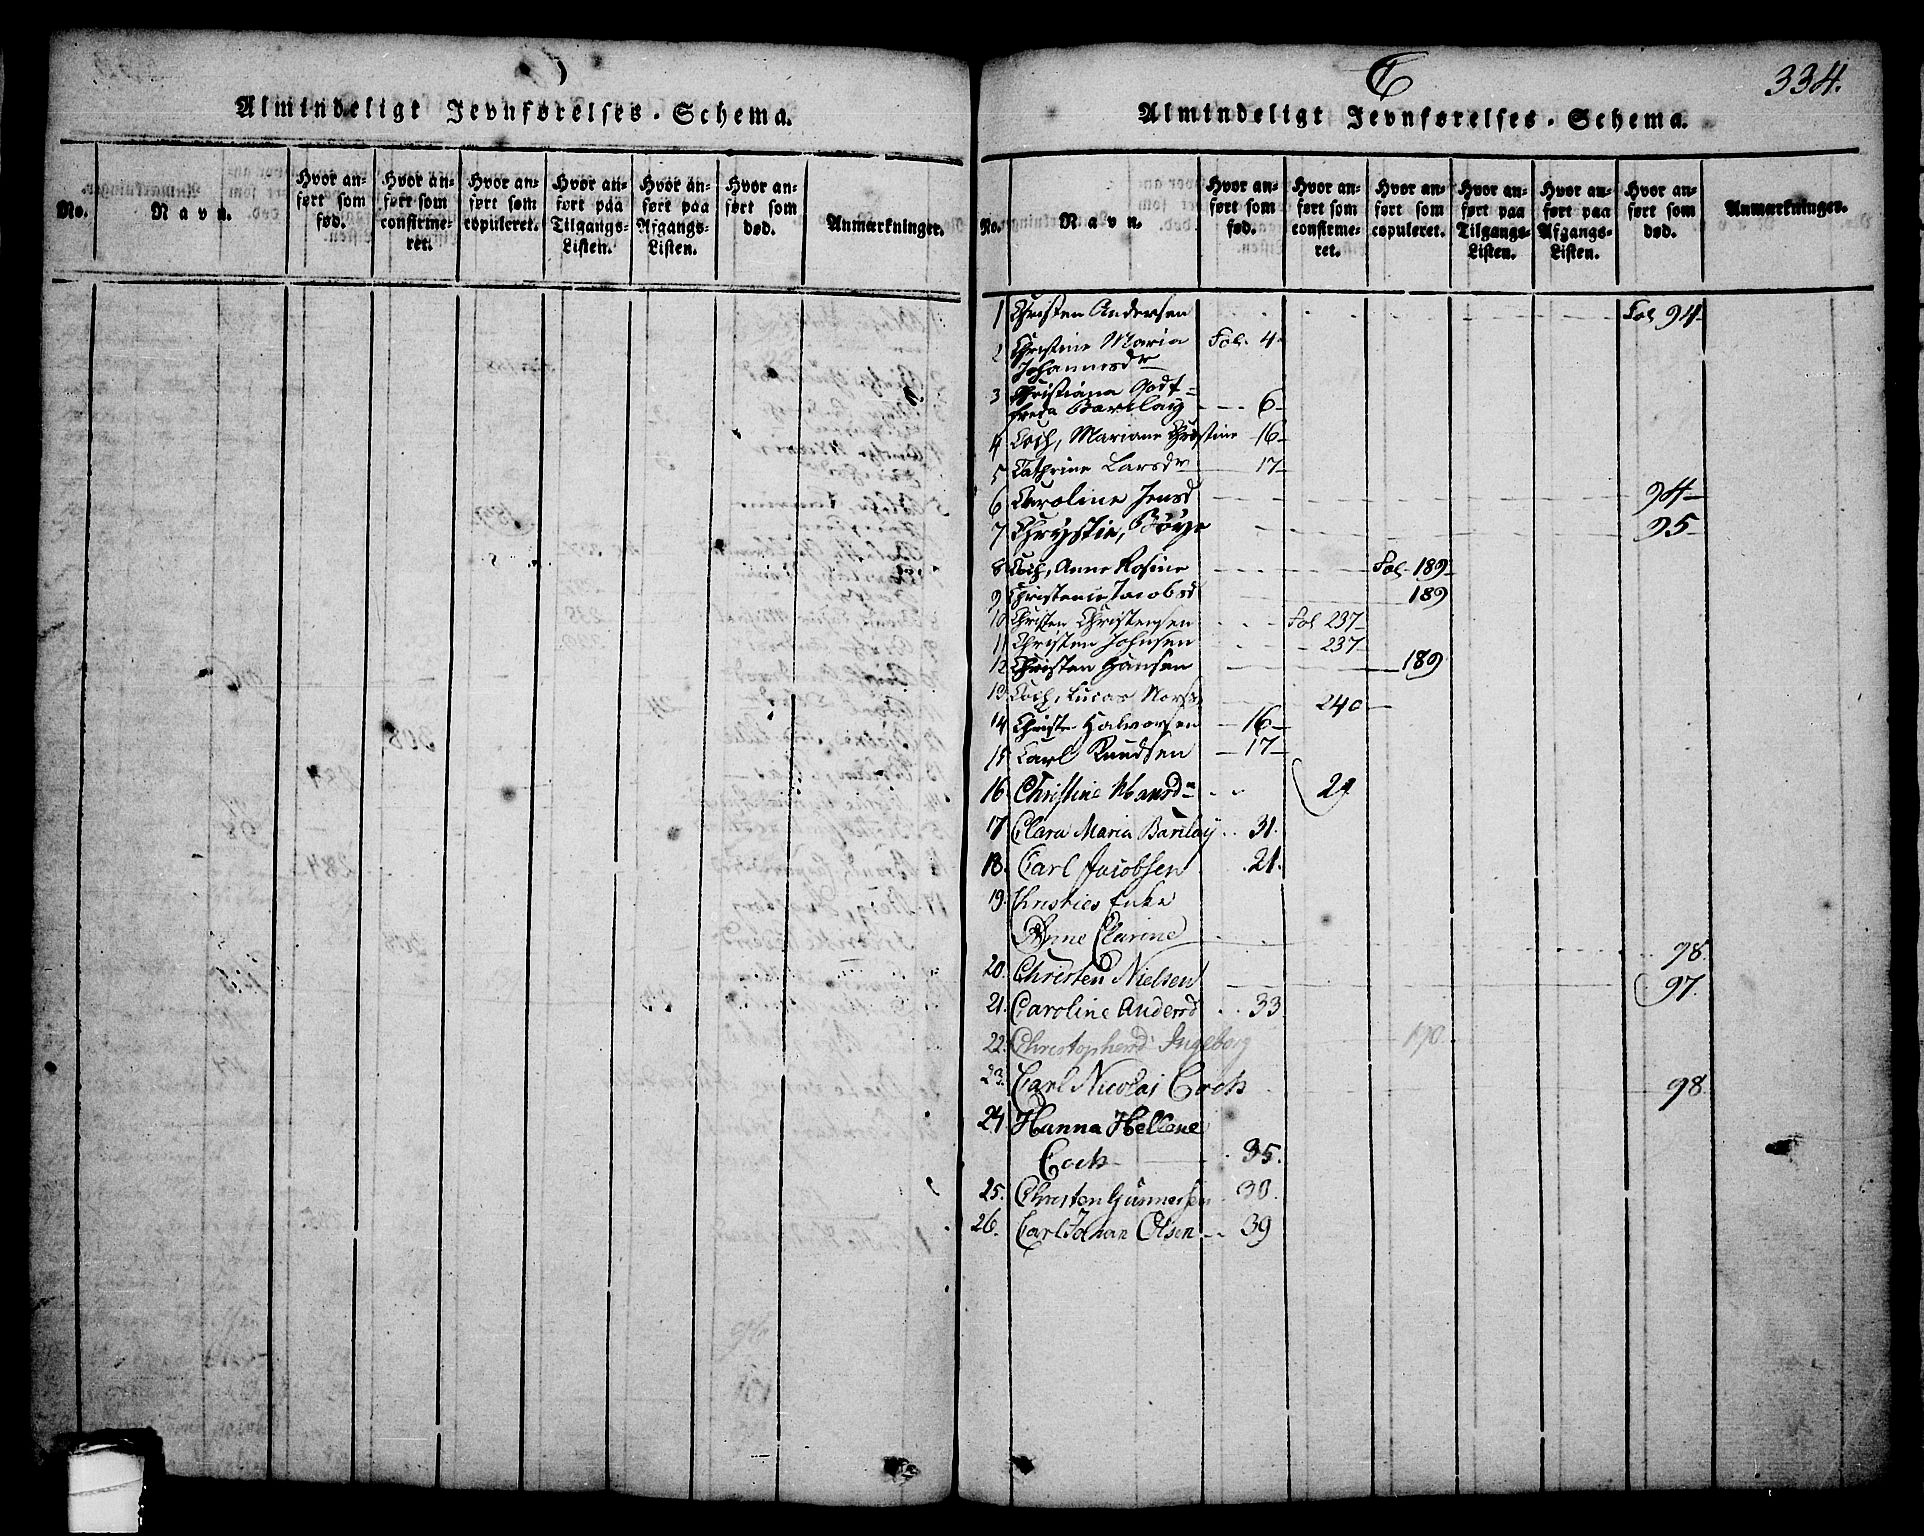 Almindeligt Jevnførelses-Schema.
No.
Navn.
Hvor an-
ført som
fød.
Hvor an-
ført som
confirme-
ret.
Hvor an-
ført som
copuleret.
Hvor an-
ført paa
Tilgangs-
Listen.
Hvor an-
ført paa
Afgangs-
Listen.
Hvor an-
ført som
død.
Anmærkninger.
C
334.
Almindeligt Jevnførelses-Schema.
No.
Navn.
Hvor an-
ført som
fød.
Hvor an-
ført som
confirme-
ret.
Hvor an-
ført som
copuleret.
Hvor an-
ført paa
Tilgangs-
Listen.
Hvor an-
ført paa
Afgangs-
Listen.
Hvor an-
ført som
død.
Anmærkninger.
1 Christen Andersen Fol 94
2 Christine Maria Fol. 4
Johannesdr
3 Christiana Godt-
freda Barclay 6
4 Coch, Mariane Christine 16
5 Cathrine Larsdr 17
6 Caroline Jensd 94
7 Chrystie, Börge 95
8 Coch, Anne Rosine Fol 189
9 Christence Jacobsd 189
10 Christen Christensen Fol 237
11 Christen Johnsen 237
12 Christen Hansen 189
13 Coch, Lucas 240
14 Christen Halvorsen 16
15 Carl Knudsen 17
16 Christine 29
17 Clara Maria Barclay 31.
18. Carl Jacobsen 21.
19. Christies Enke
Anne Clarine 98.
20. Christen Nielsen 97.
21. Caroline Andersd 33
22. Christophersd Ingeborg 190
23. Carl Nicolai Coch 98
24 Hanna Hellene
Coch 35.
25. Christen Gunnersen 30.
26. Carl Johan Olsen 39